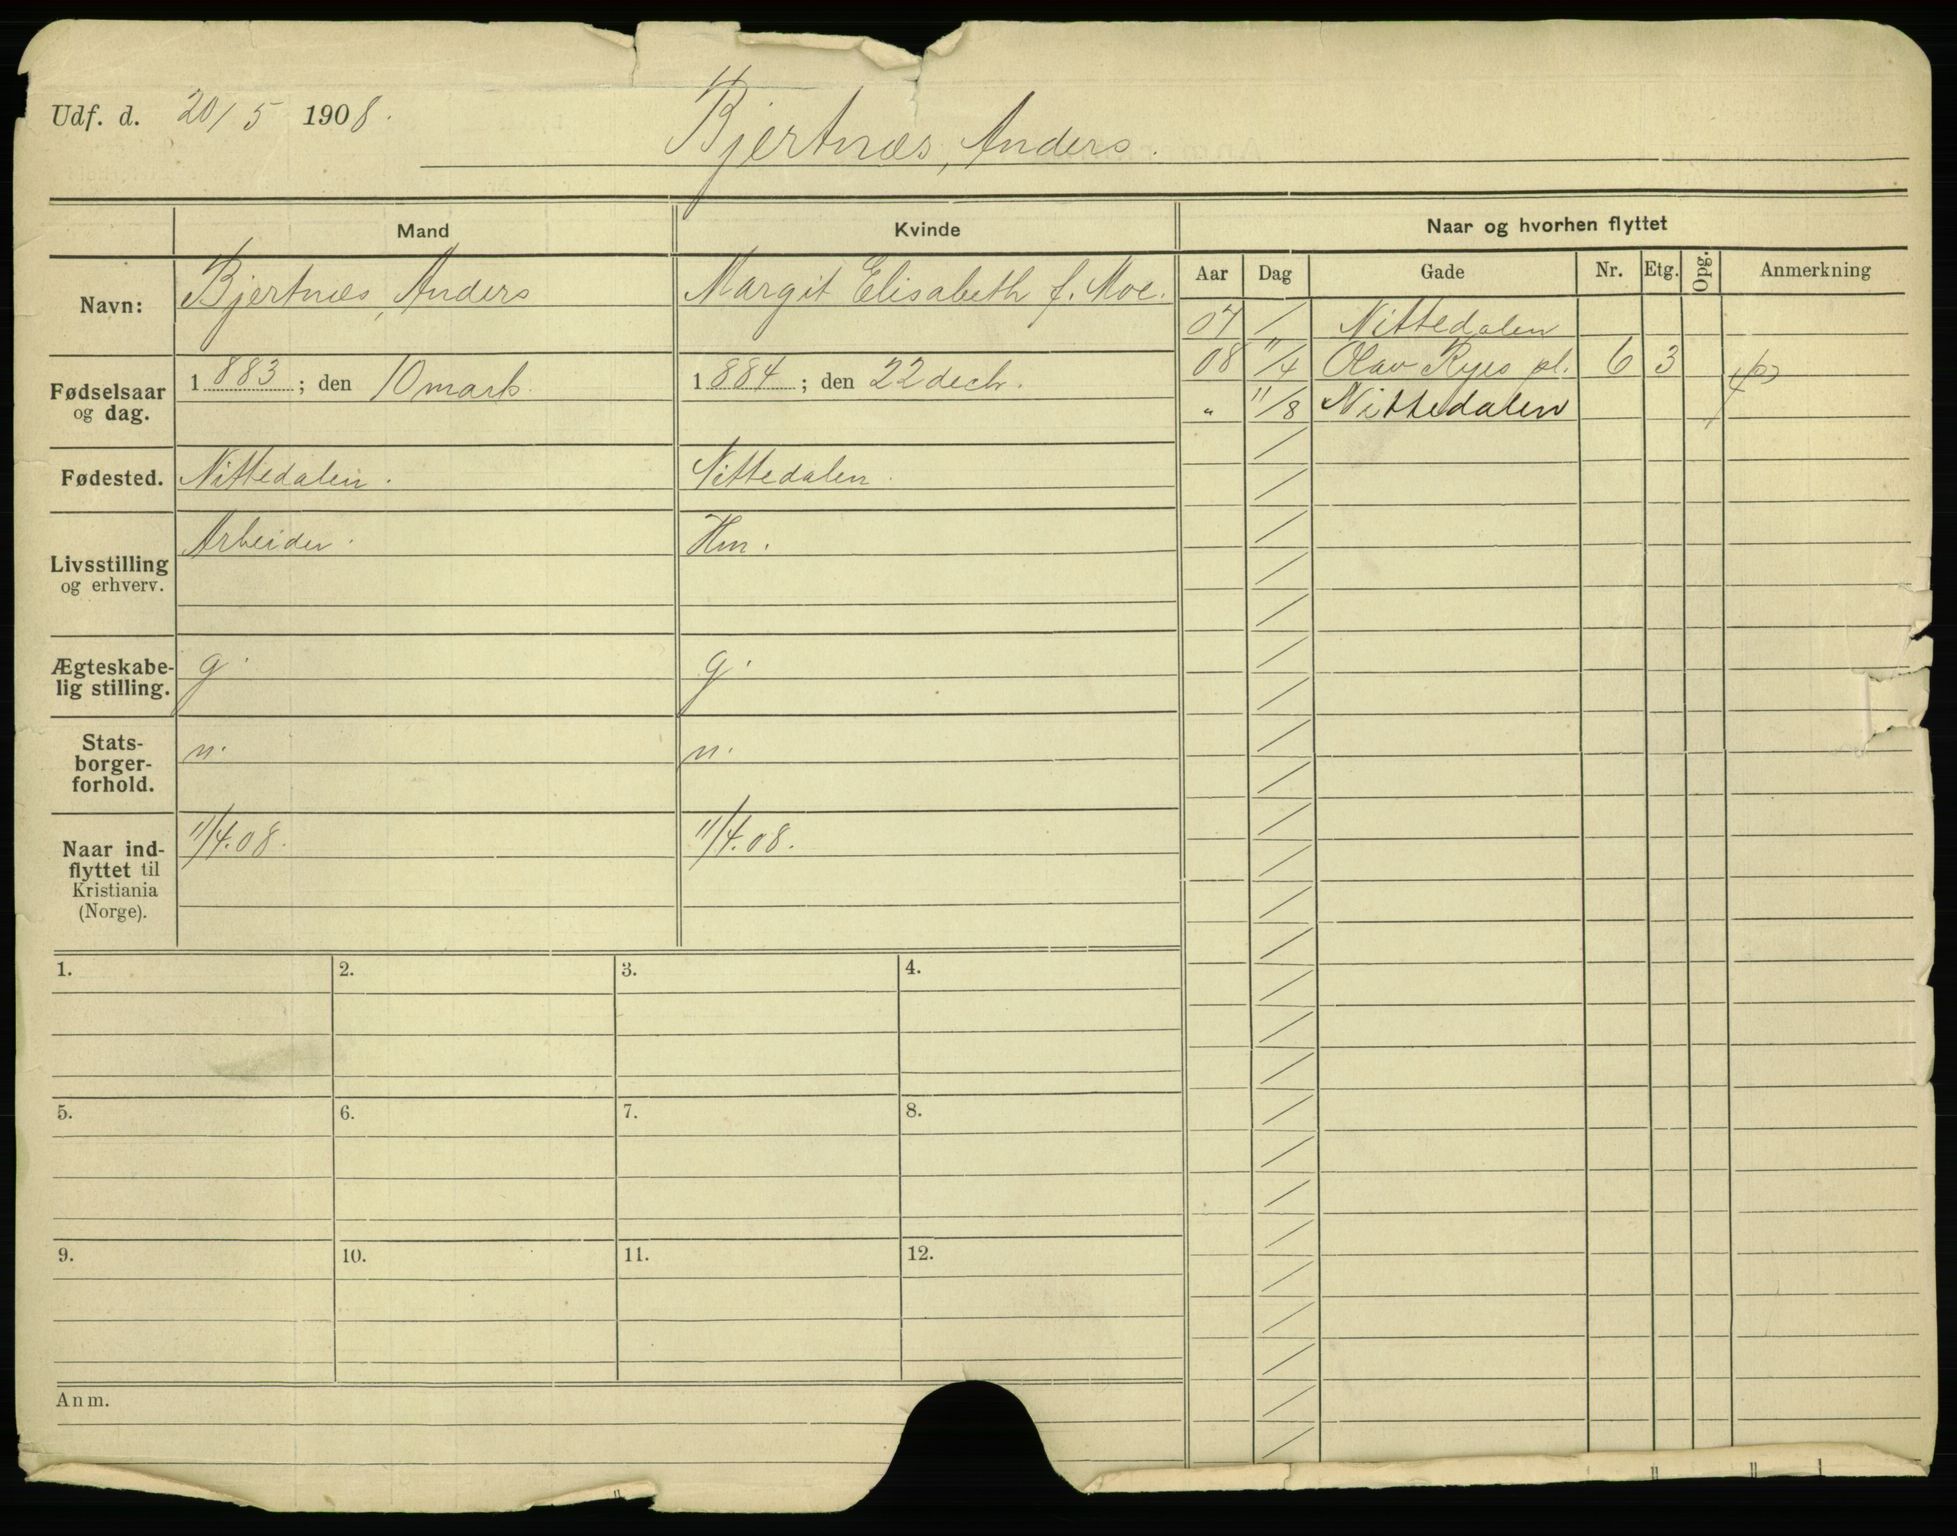 Udf. d. 20/5 1908.
Bjertnæs, Anders.
Mand
Kvinde
Naar og hvorhen flyttet
Aar Dag Gade Nr. Etg. Opg. Anmerkning
Navn: Bjertnæs, Anders Margit Elisabeth f. Moe.
Fødselsaar og dag. 1883; den 10 marts. 1884; den 22 decbr.
Fødested. Nittedalen. Nittedalen.
Livsstilling og erhverv. Arbeider. Hm.
Ægteskabe-
lig stilling. g. g.
Stats-
borger-
forhold. n. n.
Naar ind-
flyttet til
Kristiania
(Norge). 11/4.08. 11/4.08.
07 / Nittedalen
08 11/4 Olav Ryes pl. 6 3
" 11/8 Nittedalen
1. 2. 3. 4.
5. 6. 7. 8.
9. 10. 11. 12.
Anm.